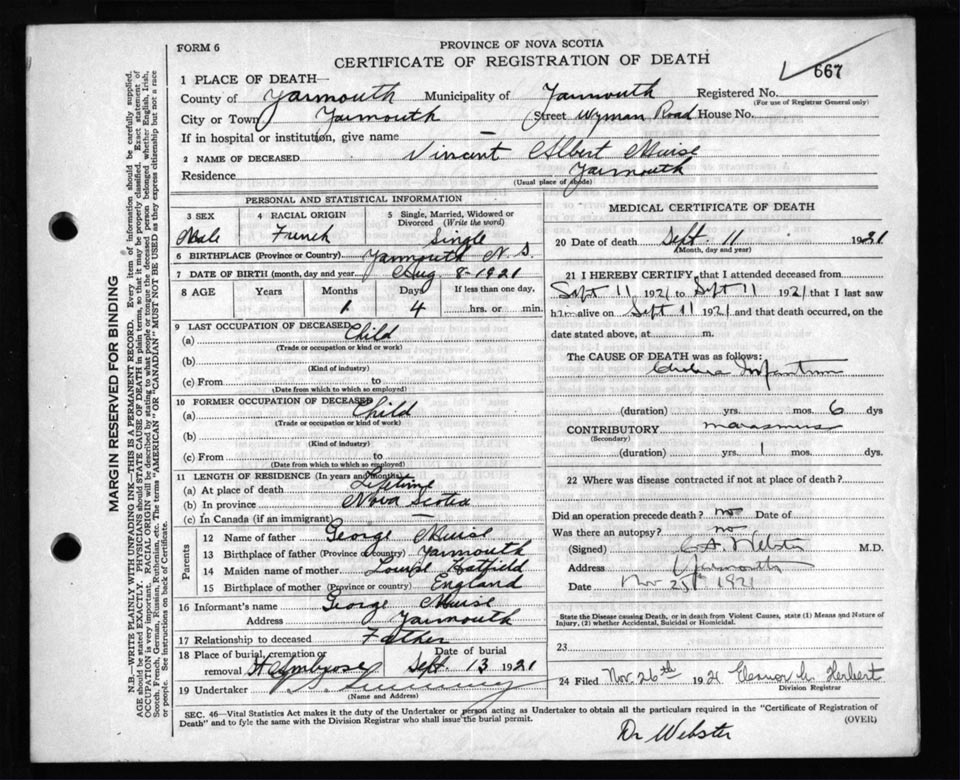 FORM 6
PROVINCE OF NOVA SCOTIA
CERTIFICATE OF REGISTRATION OF DEATH
667
1 PLACE OF DEATH—
County of Yarmouth Municipality of Yarmouth Registered No.
(For use of Registrar General only)
City or Town Yarmouth Street Wyman Road House No.
If in hospital or institution, give name —
2 NAME OF DECEASED Vincent Albert Muise
Residence Yarmouth
(Usual place of abode)
PERSONAL AND STATISTICAL INFORMATION
3 SEX
Male
4 RACIAL ORIGIN
French
5 Single, Married, Widowed or
Divorced (Write the word)
Single
6 BIRTHPLACE (Province or Country) Yarmouth N.S.
7 DATE OF BIRTH (month, day and year) Aug 8-1921
8 AGE Years Months Days If less than one day,
1 4 hrs. or min.
9 LAST OCCUPATION OF DECEASED
(a) Child
(Trade or occupation or kind of work)
(b)
(Kind of industry)
(c) From to
(Date from which to which so employed)
10 FORMER OCCUPATION OF DECEASED
(a) Child
(Trade or occupation or kind of work)
(b)
(Kind of industry)
(c) From to
(Date from which to which so employed)
11 LENGTH OF RESIDENCE (In years and months)
(a) At place of death Lifetime
(b) In province Nova Scotia
(c) In Canada (if an immigrant) —
Parents
12 Name of father George Muise
13 Birthplace of father (Province or Country) Yarmouth
14 Maiden name of mother Louise Hatfield
15 Birthplace of mother (Province or country) England
16 Informant's name George Muise
Address Yarmouth
17 Relationship to deceased Father
18 Place of burial, cremation or removal St Ambrose Date of burial Sept. 13 1921
19 Undertaker
(Name and Address)
MEDICAL CERTIFICATE OF DEATH
20 Date of death Sept 11 1921
(Month, day and year)
21 I HEREBY CERTIFY, that I attended deceased from
Sept 11 1921 to Sept 11 1921 that I last saw
h im alive on Sept 11 1921 and that death occurred, on the
date stated above, at m.
The CAUSE OF DEATH was as follows:
Cholera Infantum
(duration) yrs. mos. 6 dys
CONTRIBUTORY marasmus
(Secondary)
(duration) yrs. 1 mos. dys
22 Where was disease contracted if not at place of death?
Did an operation precede death? no Date of
Was there an autopsy? no
(Signed) C.A. Webster M.D.
Address Yarmouth
Date Nov 25th 1921
State the Disease causing Death, or in death from Violent Causes, state (1) Means and Nature of
Injury, (2) whether Accidental, Suicidal or Homicidal.
23
24 Filed Nov. 26th 1921 Eleanor G. Herbert
Division Registrar
SEC. 46—Vital Statistics Act makes it the duty of the Undertaker or person acting as Undertaker to obtain all the particulars required in the "Certificate of Registration of
Death" and to fyle the same with the Division Registrar who shall issue the burial permit.
(OVER)
Dr Webster
MARGIN RESERVED FOR BINDING
N.B.—WRITE PLAINLY WITH UNFADING INK—THIS IS A PERMANENT RECORD. Every item of information should be carefully supplied.
AGE should be stated EXACTLY. PHYSICIANS should STATE CAUSE OF DEATH in plain terms, so that it may be properly classified. Exact statement of
OCCUPATION is very important. RACIAL ORIGIN will be described by stating to what people or tongue the deceased person belonged whether English, Irish,
Scotch, French, German, Russian, Ruthenian, etc. The terms "AMERICAN" OR "CANADIAN" MUST NOT BE USED as they express citizenship but not a race
or people. See instructions on back of Certificate.